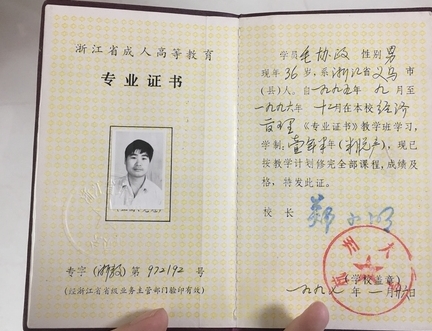 浙江省成人高等教育
专业证书
专字(浙教)第972192号
(经浙江省省级业务主管部门验印有效)
学员毛协政性别男
现年36岁,系浙江省义乌市
(县)人。自一九九五年九月至
一九九六年十二月在本校经济
管理《专业证书》教学班学习,
学制:壹年半(半脱产),现已
按教学计划修完全部课程,成绩及
格,特发此证。
校长
(学校盖章)
一九九七年一月廿六日